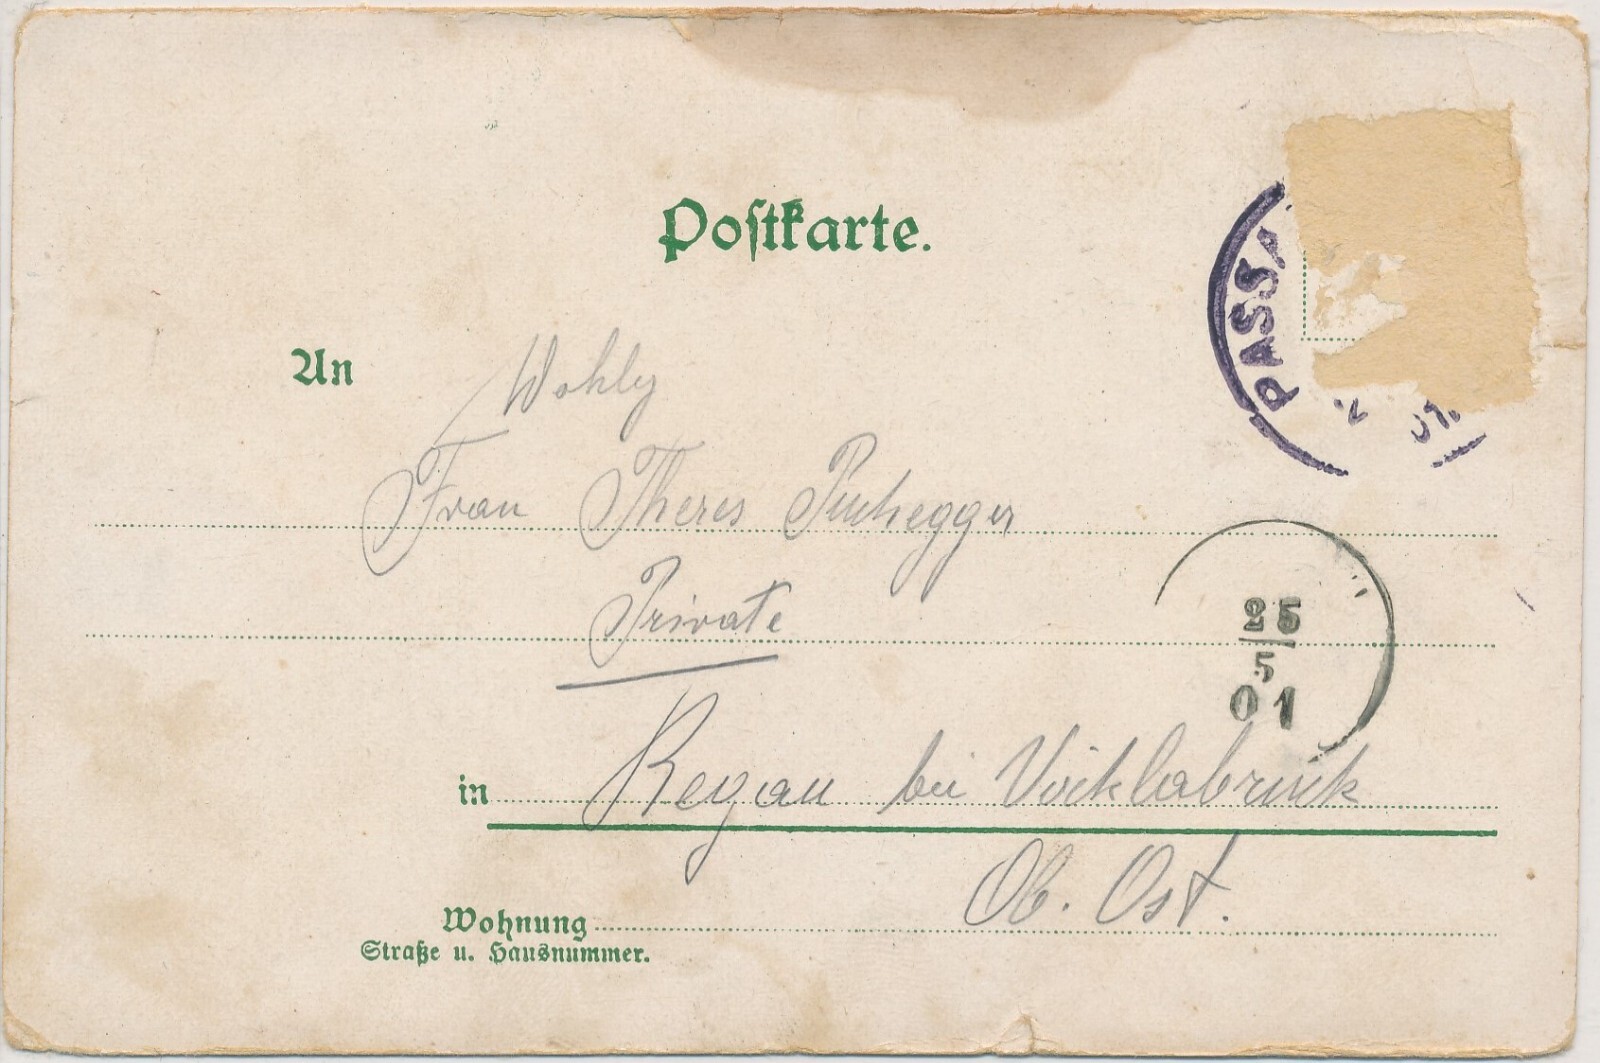 Postkarte.
PASSA
An
Wohlg
Frau Theres Puchegger
Private
25
5
01
in Regau bei Vöcklabruck
Ob. Öst.
Wohnung
Straße u. Hausnummer.